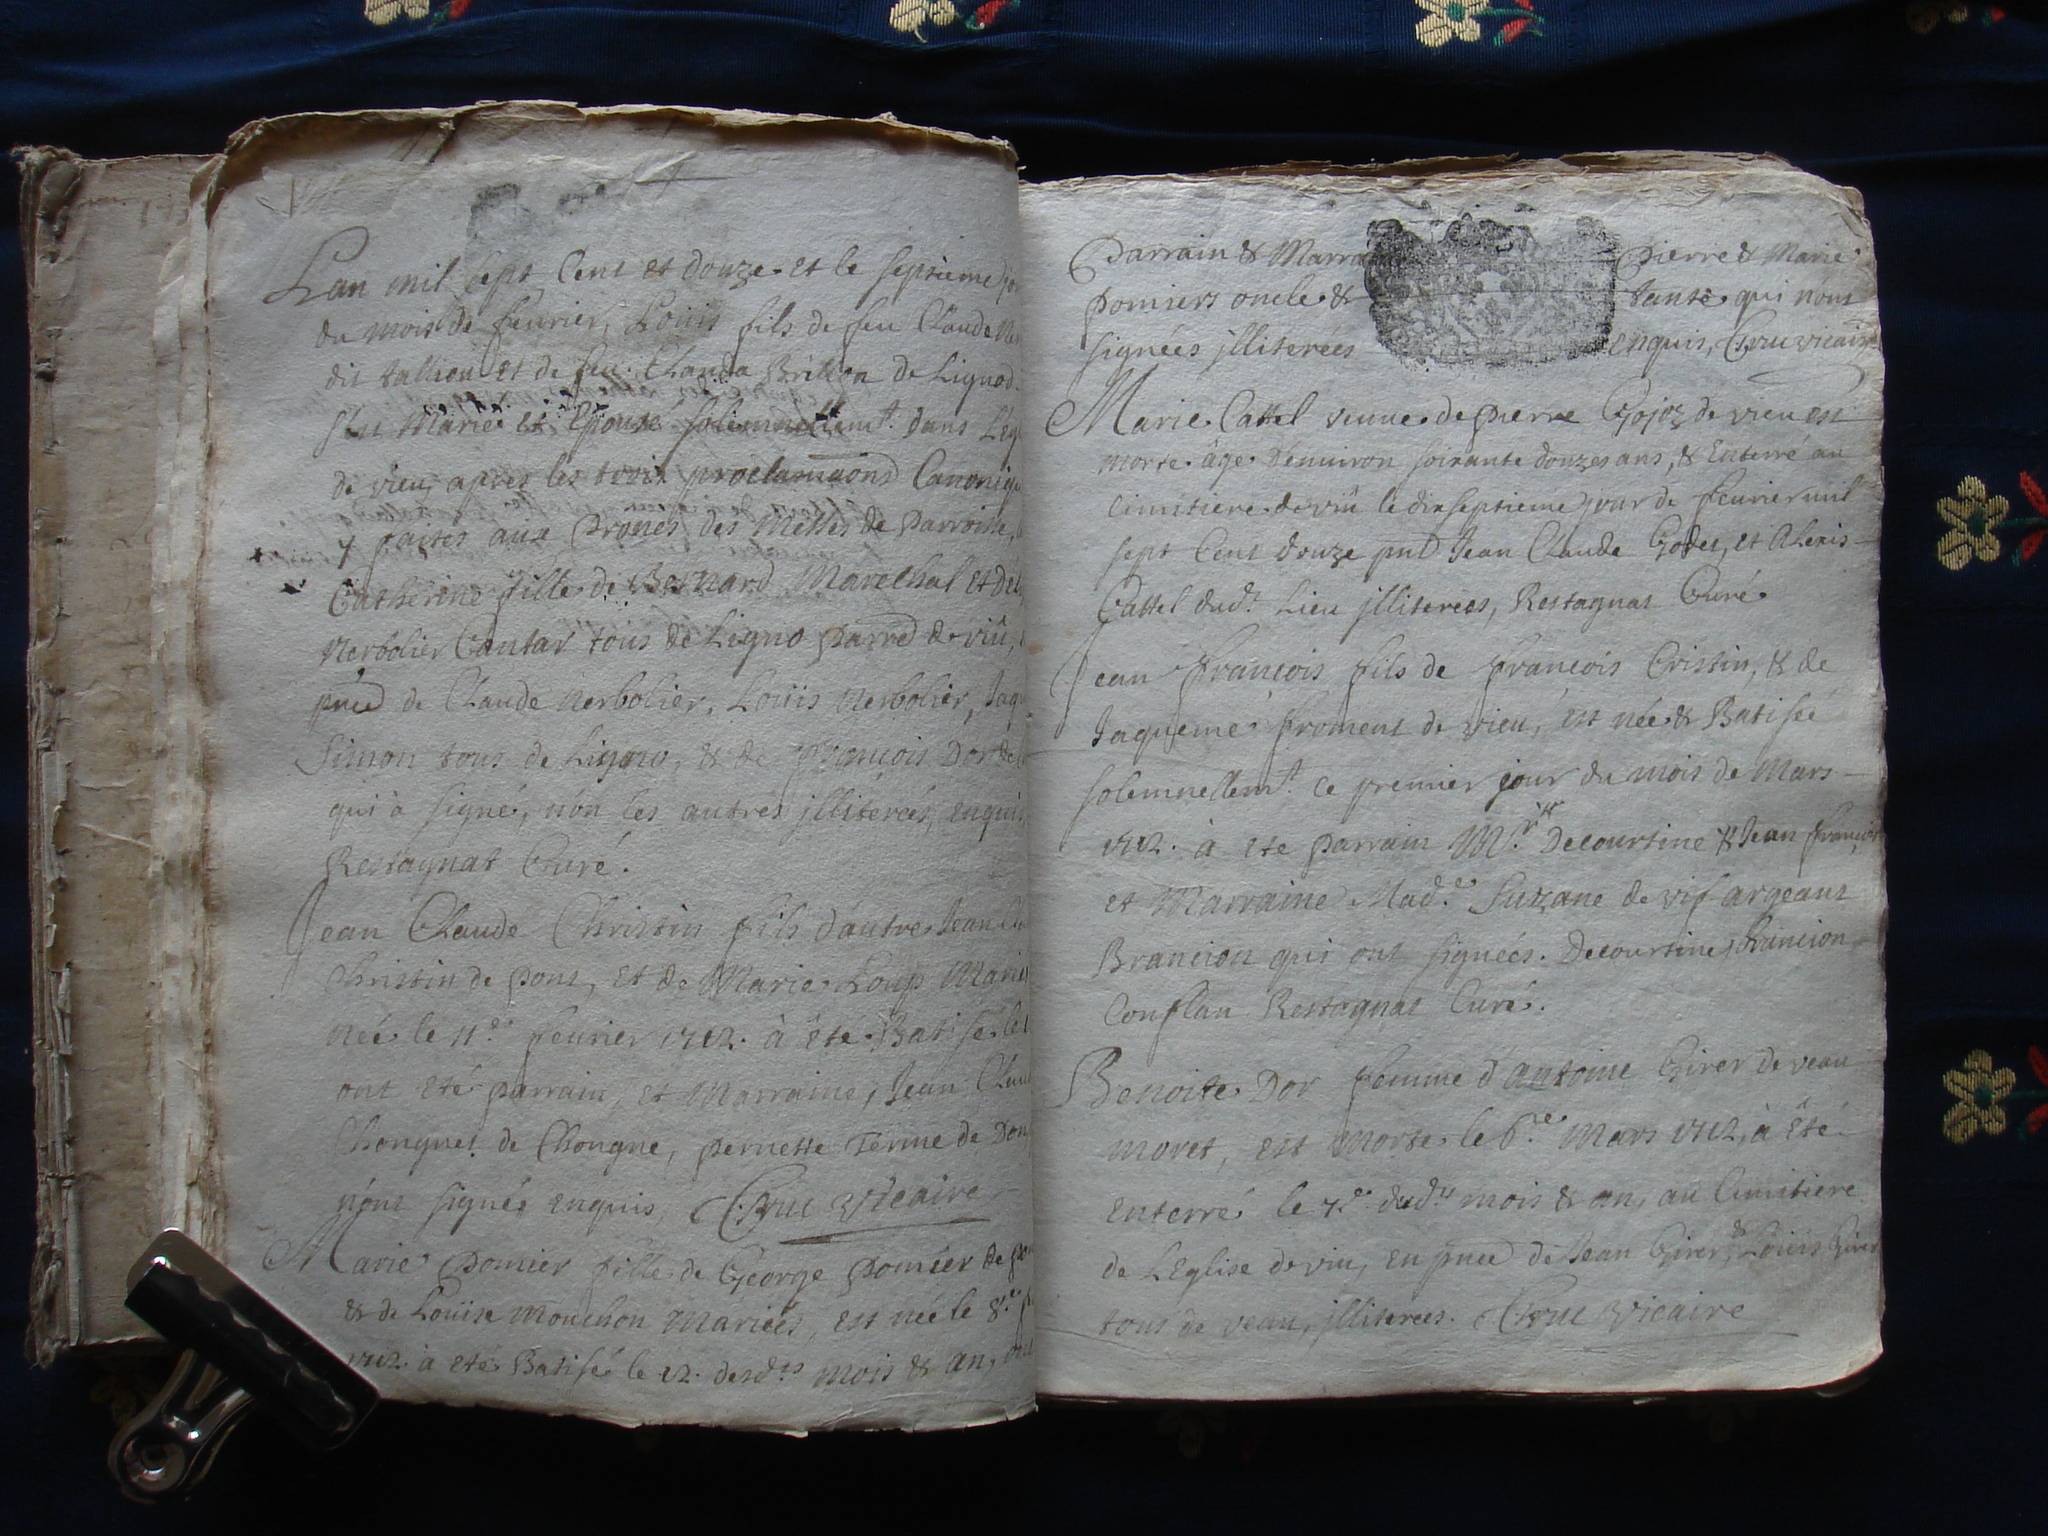 Lan mil sept Cent et douze et le septieme jo
du mois de feurier, Loüis fils de feu Claude
dit tallion et de feu Clauda Brillon de Lignod
s'est Marié et Epousé solemnellem.t dans L'eg
de vieu, apres les trois proclamaons Canoniqu
y faites aux Prones des Messes de Parroisse,
Catherine fille de Bernard Marechal et de
Nerbolier Cantar tous de Ligno parre de viû,
pnce de Claude Nerbolier, Loüis Nerbolier, Jaq
Simon tous de Ligno, & de François Dor de
qui à signé, nón les autres jlliterées, enquis
Restagnat Curé.
Jean Claude Christin fils d'autre Jean Cl
Christin de pont, et de Marie Loup Marié
née le 11.e feurier 1712. à éte Batisé le
ont eté parrain, et Marraine, Jean Clau
Chongnet de Chongne, pernette Terme de Don
n'ont signés enquis, Cruc Vicaire
Marie Pomier fille de George Pomier de po
& de Loüise Mouchon Mariées, est née le 8.e f
1712. à eté Batisée le 12. desd.ts mois & an, ont
Parrain & Marra Pierre & Marie
Pomiers oncle & tante qui nont
signées jlliterées enquis, Cruc vicaire
Marie Cattel veuue de pierre Gojoz de vieu est
morte âge d'enuiron soixante douzes ans, & Enterré au
Cimitiere de viû le dixseptieme jour de feurier mil
sept Cent douze pnt Jean Claude Godet, et Alexis
Cattel dud.t Lieu jlliterées, Restagnat Curé
Jean François fils de François Cristin, & de
Jaqueme froment de vieu, est née & Batisée
solemnellem.t ce premier jour du mois de Mars
1712. à ete parrain M.r Decourtine & Jean François
et Marraine Mad.e Suzane de vif argeant
Brancion qui ont signées. Decourtine, Brancion
Conflan Restagnat Curé.
Benoite Dor femme d'antoine Girer de veau
moret, est morte le 6.re Mars 1712, à êté
enterré le 7.e dud.t mois & an, au Cimitiere
de L'Eglise de viu, en pnce de Jean Girer, & Loüis Girer
tous de veau, jlliterées. Cruc Vicaire